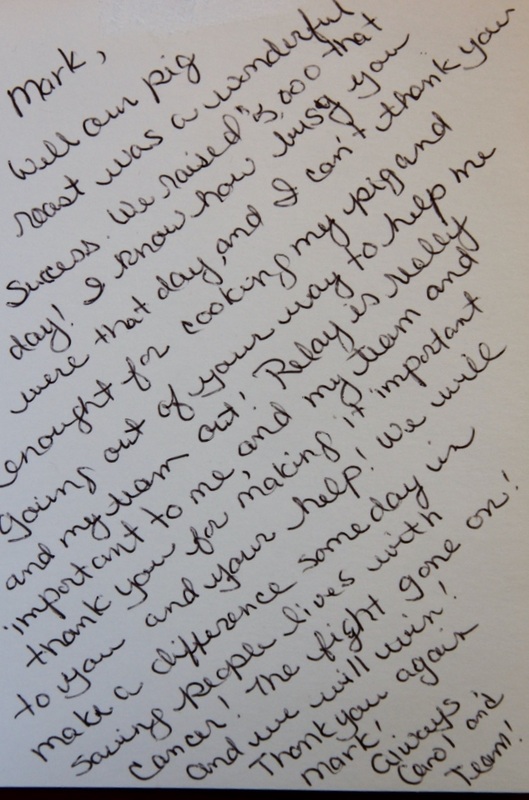 Mark,
Well our pig
roast was a wonderful
success. We raised $5,000 that
day! I know how busy you
were that day, and I can't thank you
enought for cooking my pig and
going out of your way to help me
and my team out! Relay is really
important to me, and my team and
thank you for making it important
to you and your help! We will
make a difference someday in
saving people lives with
cancer! The fight gone on!
and we will win!
Thank you again
Mark!
Always
Carol and
Team!